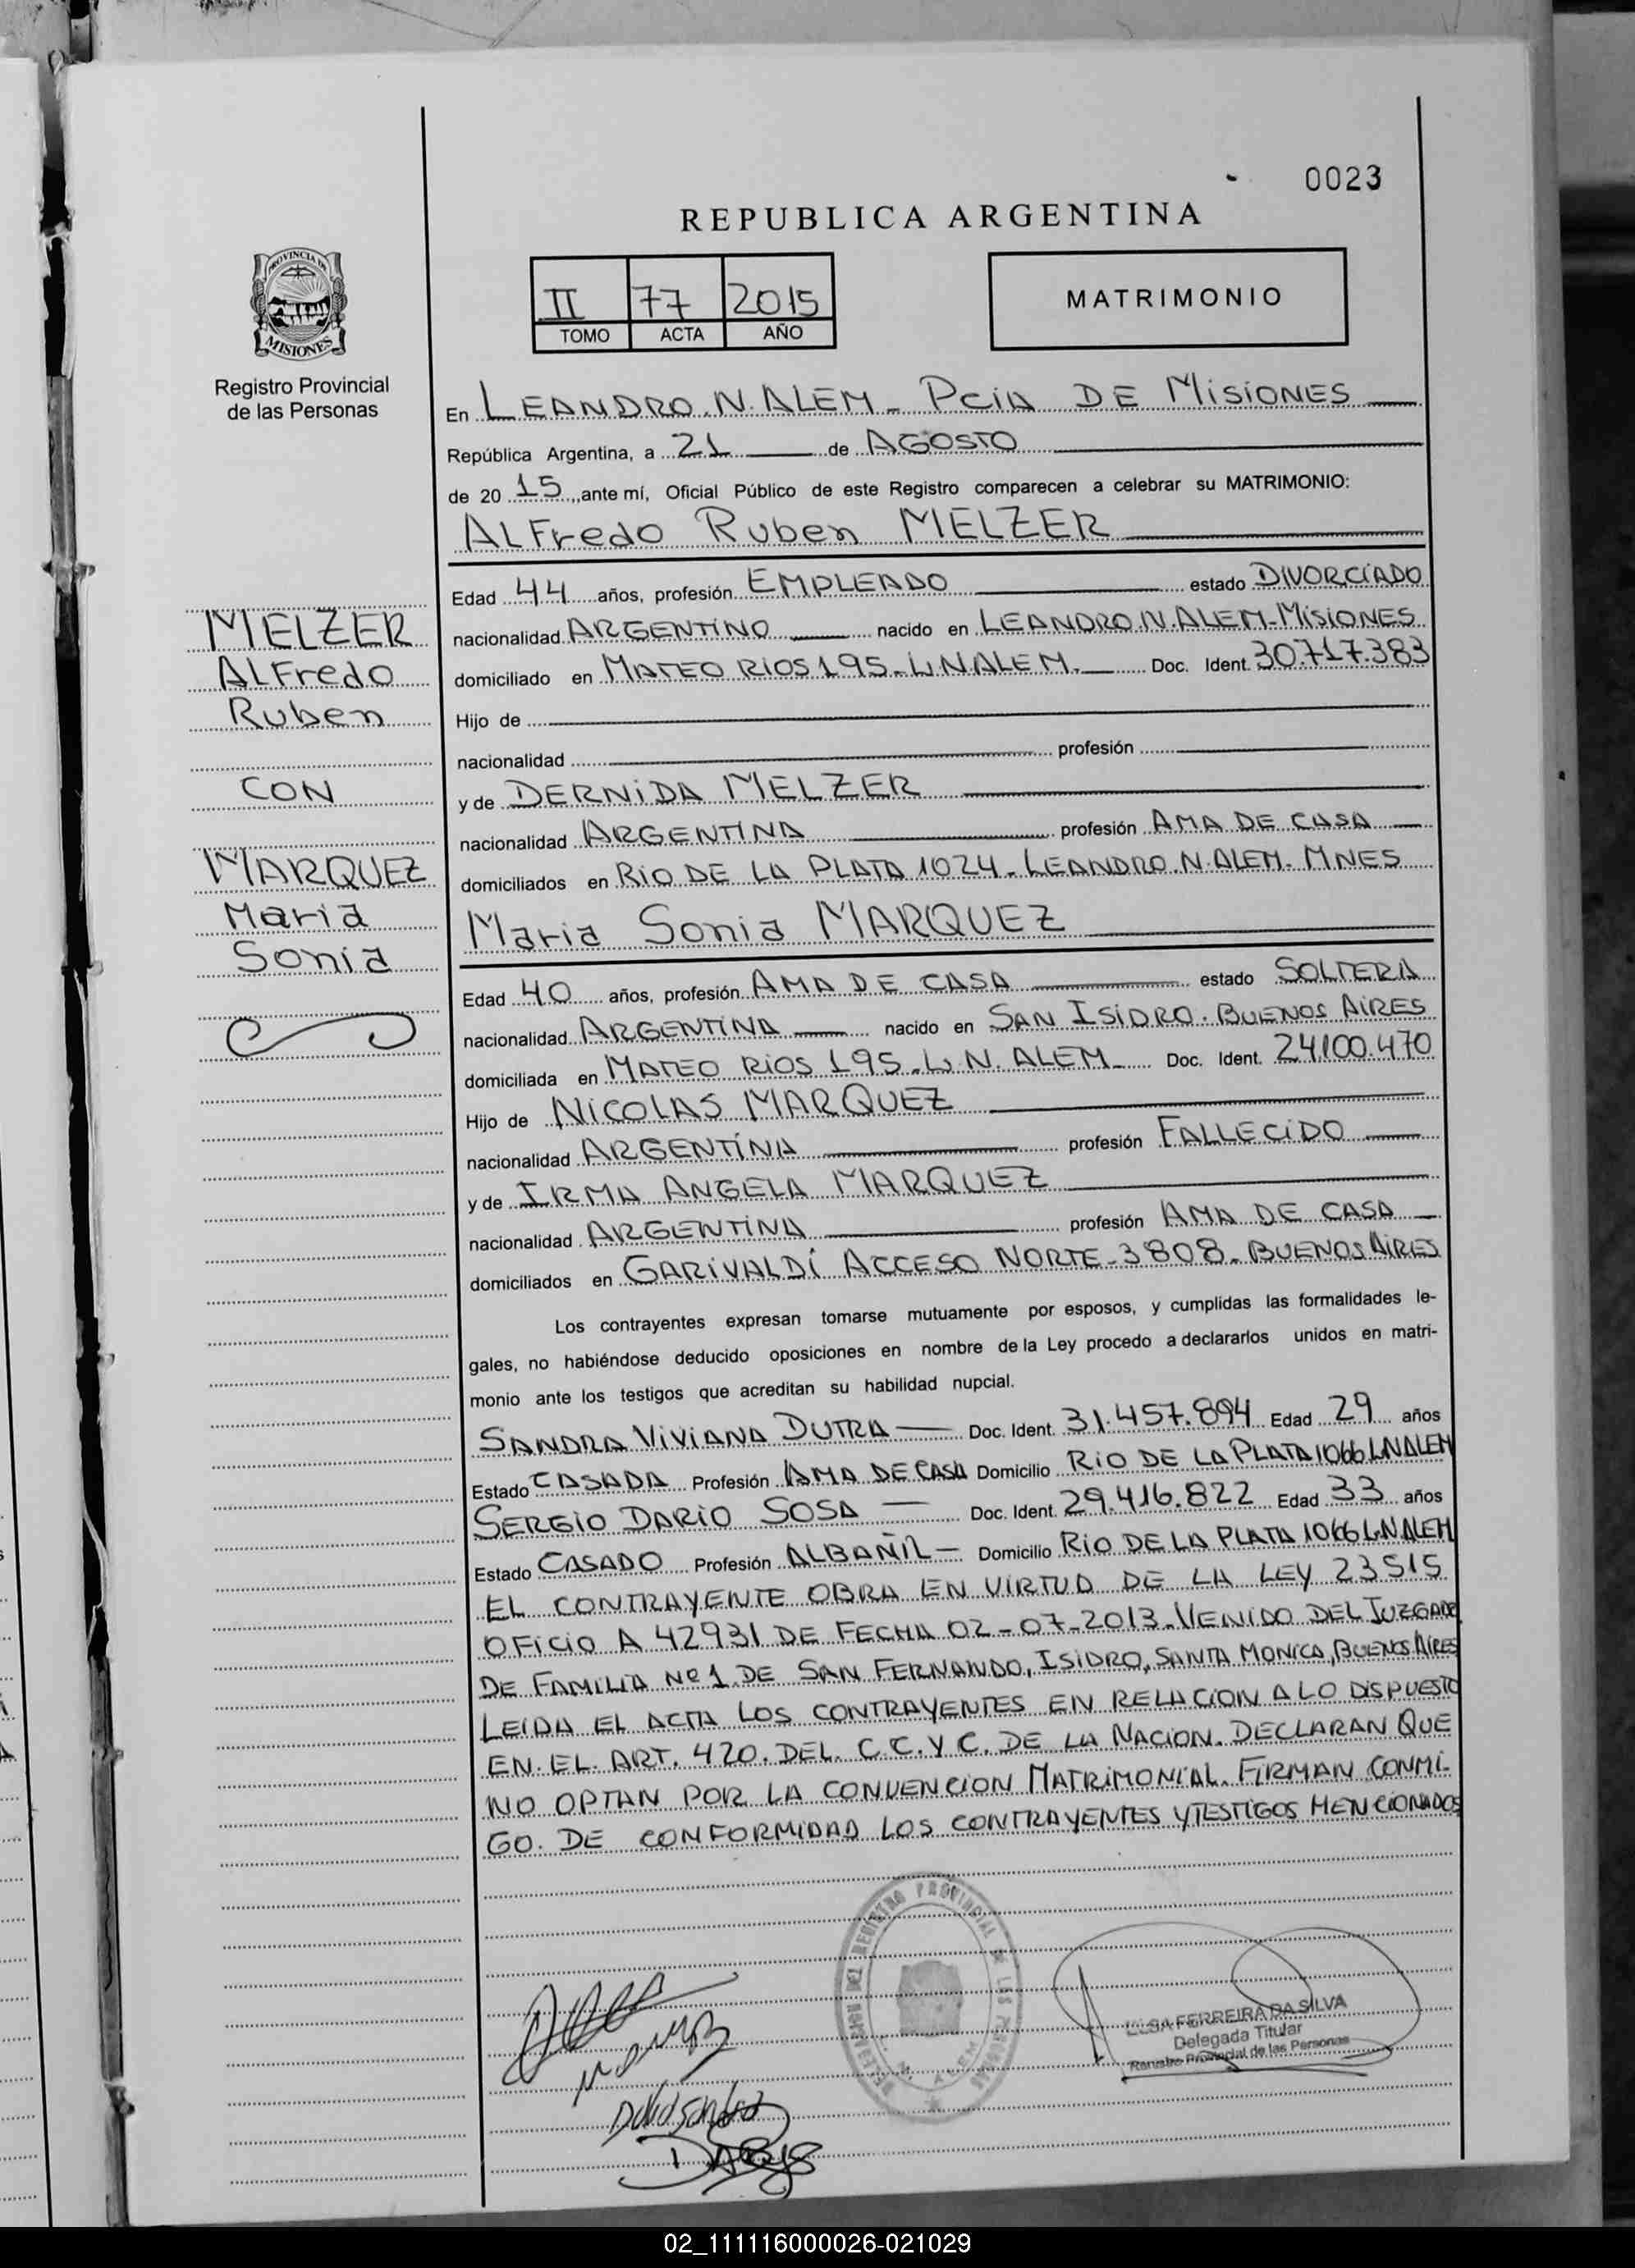 0023
REPUBLICA ARGENTINA
PROVINCIA DE
MISIONES
Registro Provincial
de las Personas
II 77 2015
TOMO ACTA AÑO
MATRIMONIO
En LEANDRO.N.ALEM - PCIA DE MISIONES
República Argentina, a 21 de AGOSTO
de 20 15, ante mí, Oficial Público de este Registro comparecen a celebrar su MATRIMONIO:
ALFredo Ruben MELZER
Edad 44 años, profesión EMPLEADO estado DIVORCIADO
nacionalidad ARGENTINO nacido en LEANDRO.N.ALEM-MISIONES
domiciliado en MATEO RIOS 195-L.N.ALEM. Doc. Ident. 30.717.383
Hijo de
nacionalidad profesión
y de DERNIDA MELZER
nacionalidad ARGENTINA profesión AMA DE CASA
domiciliados en RIO DE LA PLATA 1024-LEANDRO.N.ALEM-MNES
MELZER
ALFredo
Ruben
CON
MARQUEZ
Maria
Sonia
Maria Sonia MARQUEZ
Edad 40 años, profesión AMA DE CASA estado SOLTERA
nacionalidad ARGENTINA nacido en SAN ISIDRO. BUENOS AIRES
domiciliada en MATEO RIOS 195-L.N.ALEM Doc. Ident. 24.100.470
Hijo de NICOLAS MARQUEZ
nacionalidad ARGENTINA profesión FALLECIDO
y de IRMA ANGELA MARQUEZ
nacionalidad ARGENTINA profesión AMA DE CASA
domiciliados en GARIVALDÍ ACCESO NORTE-3808-BUENOS AIRES
Los contrayentes expresan tomarse mutuamente por esposos, y cumplidas las formalidades le-
gales, no habiéndose deducido oposiciones en nombre de la Ley procedo a declararlos unidos en matri-
monio ante los testigos que acreditan su habilidad nupcial.
SANDRA VIVIANA DUTRA Doc. Ident. 31.457.894 Edad 29 años
Estado CASADA Profesión AMA DE CASA Domicilio RIO DE LA PLATA 1066 L.N.ALEM
SERGIO DARIO SOSA Doc. Ident. 29.416.822 Edad 33 años
Estado CASADO Profesión ALBAÑIL Domicilio RIO DE LA PLATA 1066 L.N.ALEM
EL CONTRAYENTE OBRA EN VIRTUD DE LA LEY 23515
OFICIO A 42931 DE FECHA 02-07-2013-VENIDO DEL JUZGADO
DE FAMILIA Nº 1 DE SAN FERNANDO, ISIDRO, SANTA MONICA, BUENOS AIRES
LEIDA EL ACTA LOS CONTRAYENTES EN RELACION A LO DISPUESTO
EN.EL.ART.420.DEL.C.C.Y C.DE LA NACION. DECLARAN QUE
NO OPTAN POR LA CONVENCION MATRIMONIAL. FIRMAN CONMI-
GO. DE CONFORMIDAD LOS CONTRAYENTES Y TESTIGOS MENCIONADOS
DELEGACION DEL REGISTRO PROVINCIAL DE LAS PERSONAS
FERREIRA DA SILVA
Delegada Titular
Registro Provincial de las Personas
02_111116000026-021029